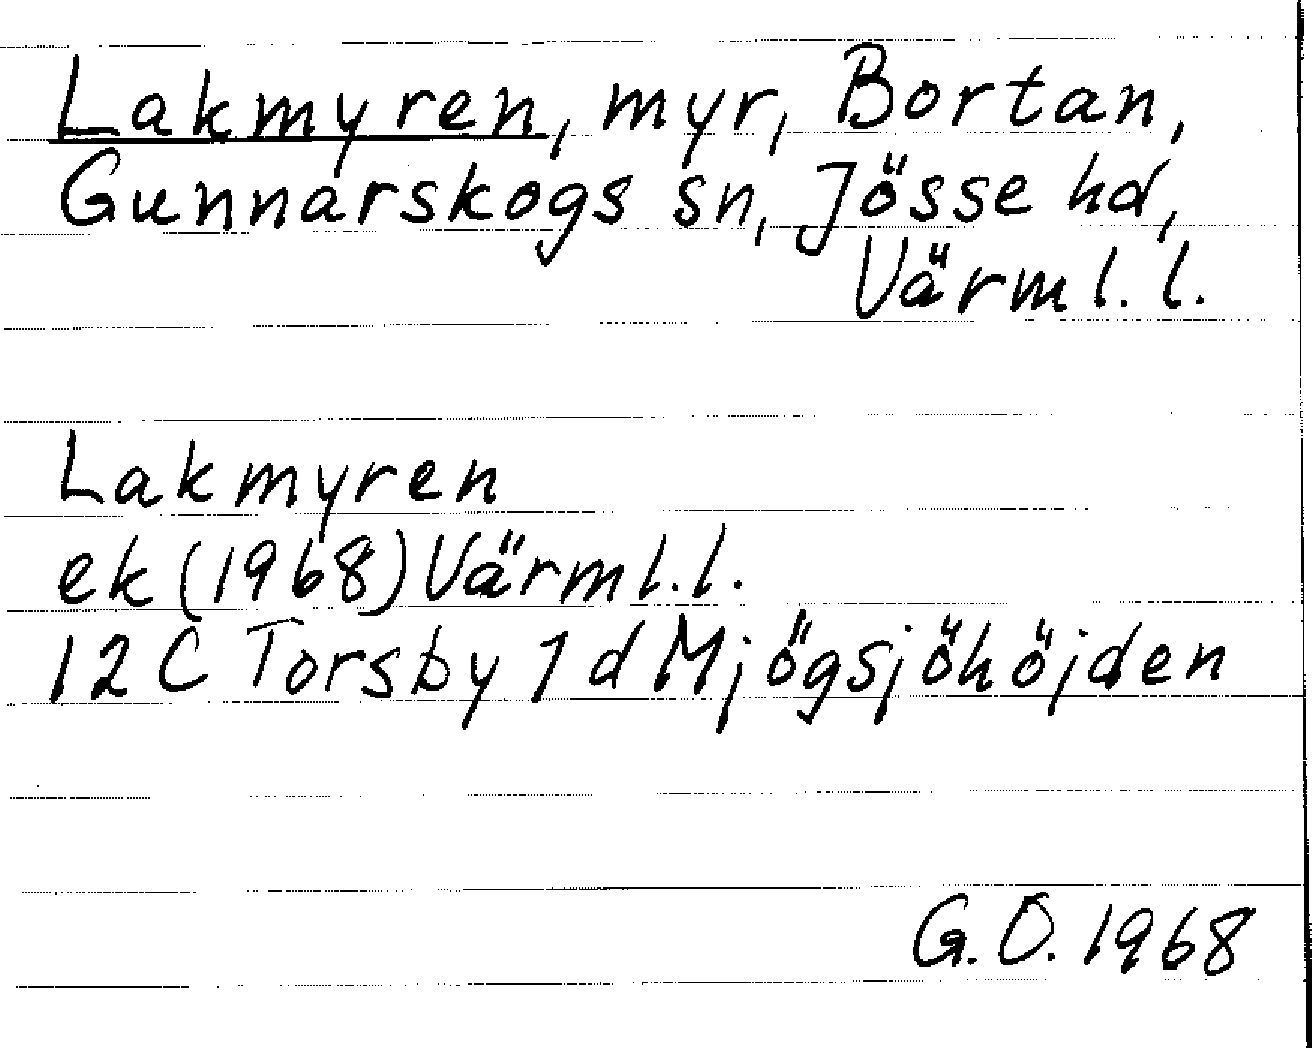 Lakmyren, myr, Bortan,
Gunnarskogs sn, Jösse hd,
Värml. l.
Lakmyren
ek (1968) Värml. l.
12 C Torsby 1 d Mjögsjöhöjden
G.O. 1968